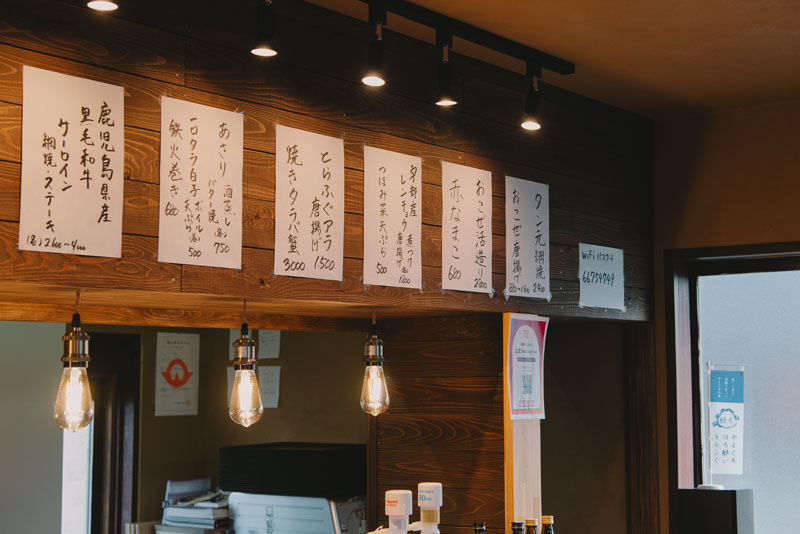 鹿児島県産
黒毛和牛
サーロイン
網焼・ステーキ
(各)2600〜4000
あさり 酒蒸し
バター焼
(各)750
白子 ボイル
天ぷら
(各)500
鉄火巻き
680
とらふぐアラ
唐揚げ
1500
焼きタラバ蟹
3000
宇部産
レンチョウ 煮つけ
唐揚げ
つぼみ菜天ぷら
500
おこぜ活造り
2800
赤なまこ
680
タン元網焼
おこぜ唐揚げ
WiFi パスワード
66754749
やまぐち
ほろ酔い
とらふぐ